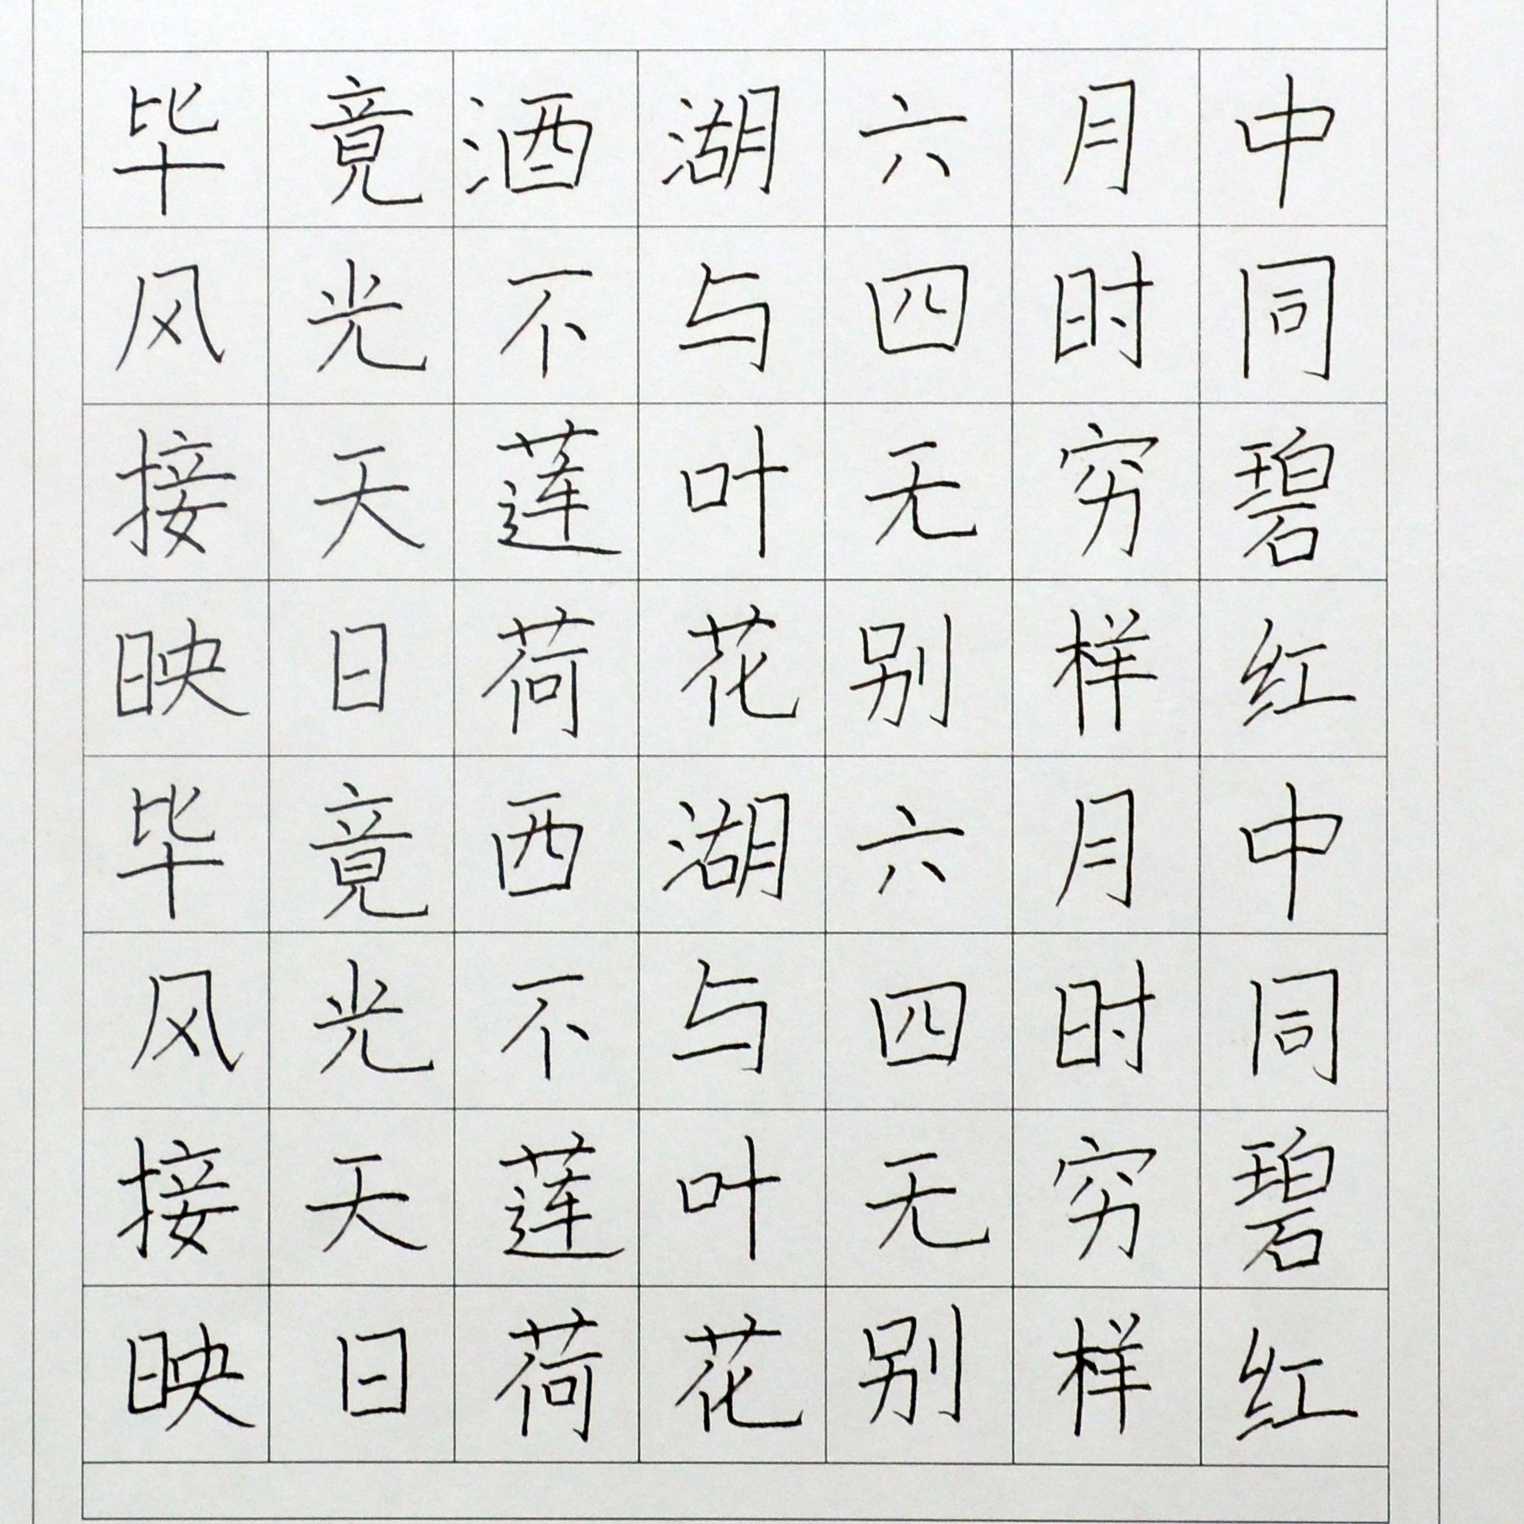 毕竟酒湖六月中
风光不与四时同
接天莲叶无穷碧
映日荷花别样红
毕竟西湖六月中
风光不与四时同
接天莲叶无穷碧
映日荷花别样红